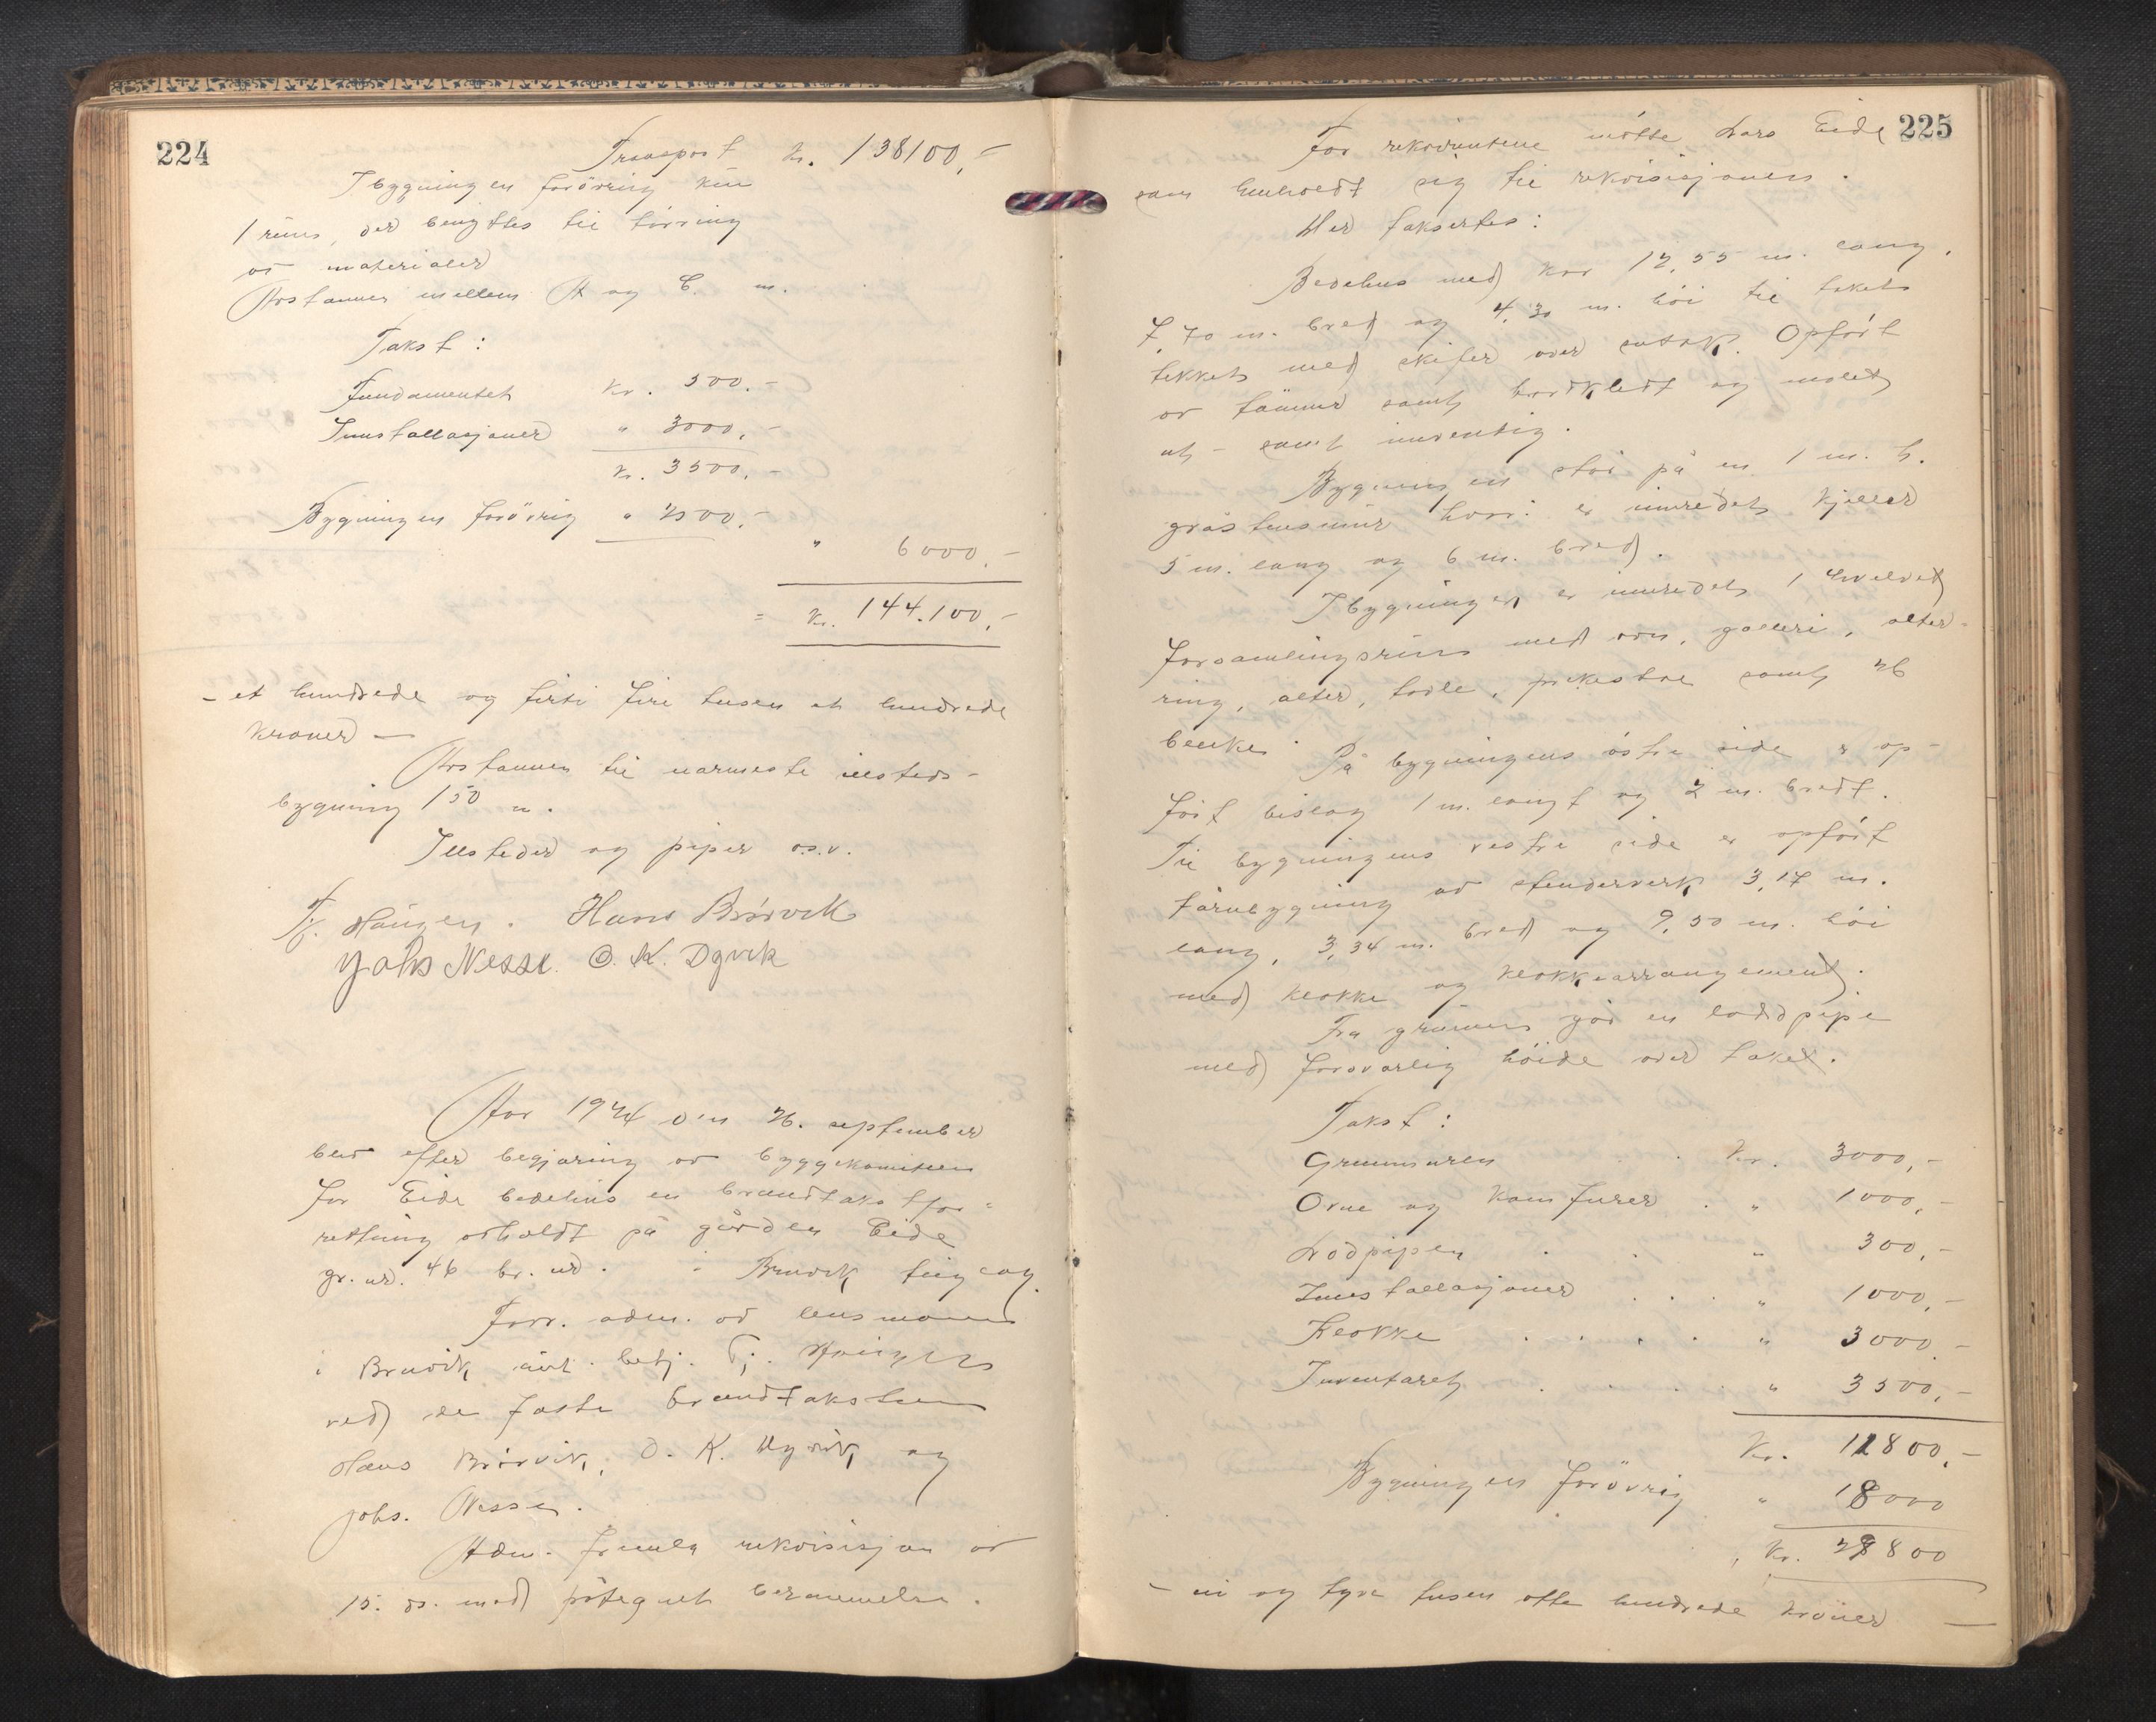 224
Transport kr. 138100,-
I bygningen forövrig kun
1 rum, der benyttes til törring
av materialer
Avstanden mellem A og C. m.
Takst:
Fundamentet kr. 500.-
Innstallasjoner " 3000,-
kr. 3500,-
Bygningen forövrig " 2500,-
" 6000,-
= kr. 144.100,-
- et hundrede og firti fire tusen et hundrede
kroner -
Avstanden til nærmeste illsteds-
bygning 150 m.
Illsteder og piper o.s.v.
Tj. Haugen. Hans Brørvik
Johs Nesse. O. K. Dyvik
Aar 1924 den 26. september
blev efter begjæring av byggekomiteen
for Eide bedehus en brandtakstfor-
retning avholdt på gården Eide
gr. nr. 46 br. nr. i Bruvik tinglag.
Forr. adm. av lensmann
i Bruvik, aut. betj. Tj. Haugen
ved de faste brandtakstmenn
Hans Brörvik, O. K. Dyvik, og
Johs. Nesse.
Adm. fremla rekvisisjon av
15. ds. med påtegnet berammelse.
225
For rekvirentene mötte Lars Eide
som henholdt sig til rekvisisjonen.
Her taksertes:
Bedehus med kor 12,55 m. lang,
7,70 m. bred og 4,30 m. höi til taket
tekket med skifer over sutak. Opfört
av tömmer samt bordkledt og malet
ut- samt innvendig.
Bygningen står på en 1 m. h.
gråstensmur hvori er innredet kjeller
5 m. lang og 6 m. bred.
I bygningen er innredet 1 hvelvet
forsamlingsrum med ovn, galleri, alter-
ring, alter, tavle, prekestol samt 26
benker.
På bygningens östre side er op-
fört bislag 1 m. langt og 2 m. bredt.
Til bygningens vestre side er opfört
tårnbygning av stenderverk 3,17 m.
lang, 3,34 m. bred og 9,50 m. höi
med klokke og klokkearrangement.
Fra grunnen går en loddpipe
med forsvarlig höide over taket.
Takst:
Grunnmuren . . kr. 3000,-
Ovne og komfurer . " 1000,-
Lodpipen . . " 300,-
Innstallasjoner . . . " 1000,-
Klokke . . . . " 3000.-
Inventaret . . . . " 3500,-
Kr. 11800,-
Bygningen forövrig " 18000
, Kr. 29800
- ni og tyve tusen otte hundrede kroner -